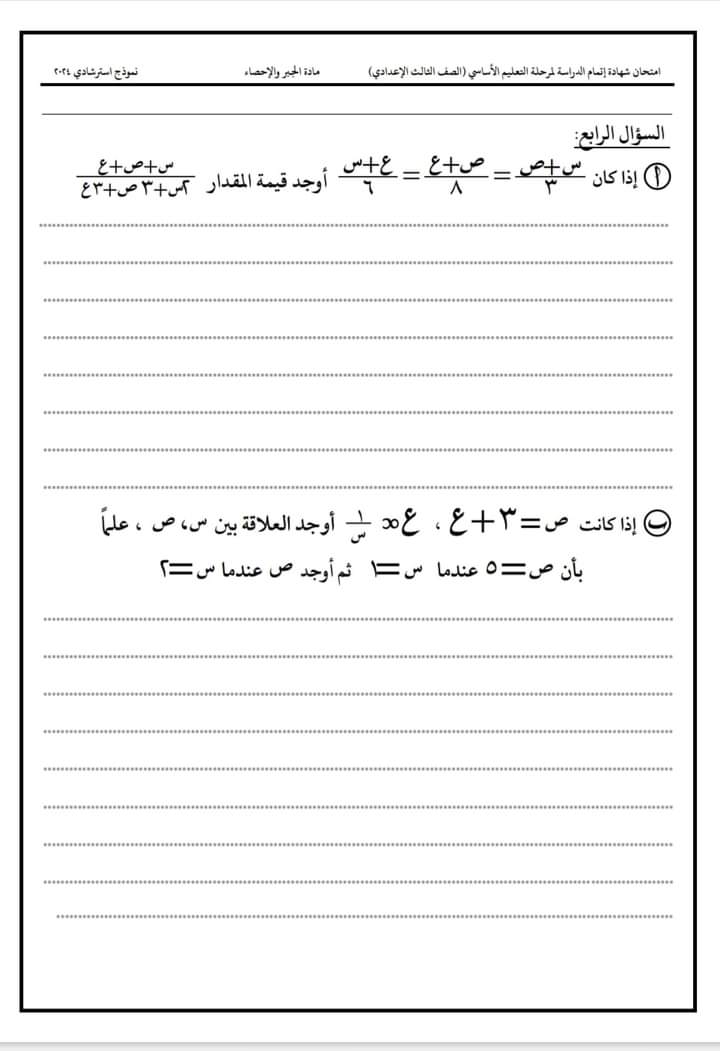 امتحان شهادة إتمام الدراسة لمرحلة التعليم الأساسي (الصف الثالث الإعدادي) مادة الجبر والإحصاء نموذج استرشادي ٢٠٢٤
السؤال الرابع:
أ إذا كان (س+ص)/٣ = (ص+ع)/٨ = (ع+س)/٦ أوجد قيمة المقدار (س+ص+ع)/(٢س+٣ص+٣ع)
ب إذا كانت ص=٣+ع ، ع∝ ١/س أوجد العلاقة بين س، ص ، علماً
بأن ص=٥ عندما س=١ ثم أوجد ص عندما س=٢